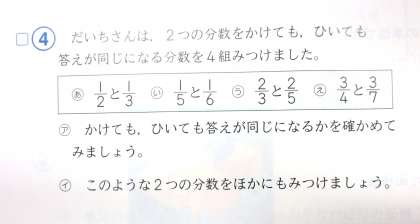 ④ だいちさんは，２つの分数をかけても，ひいても
答えが同じになる分数を４組みつけました。
あ 1/2と1/3 い 1/5と1/6 う 2/3と2/5 え 3/4と3/7
ア かけても，ひいても答えが同じになるかを確かめて
みましょう。
イ このような２つの分数をほかにもみつけましょう。